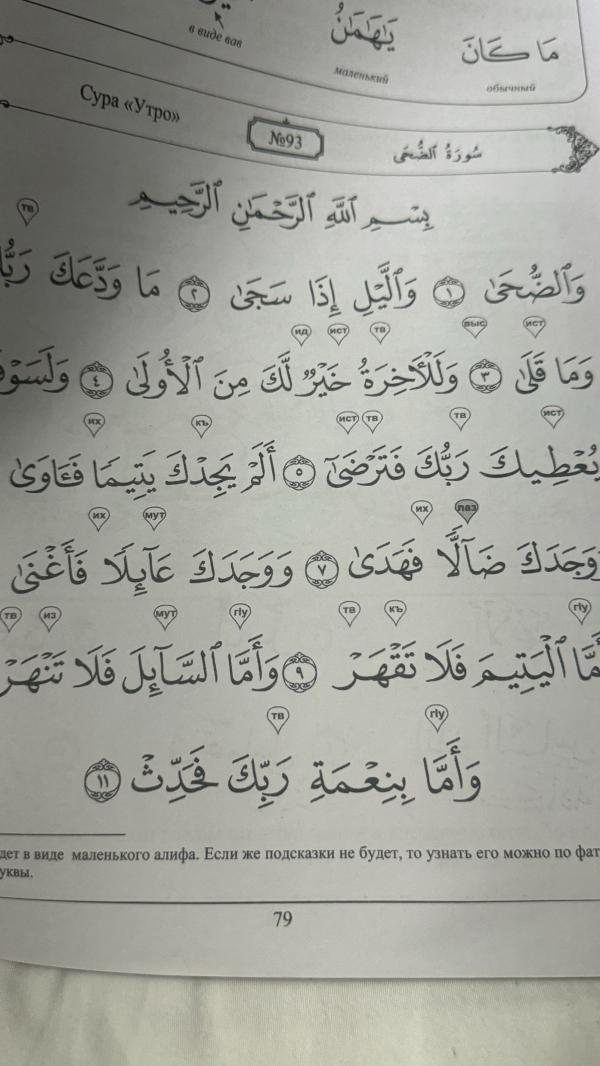 в виде вав
يَـٰهَـٰمَـٰنُ
مَا كَانَ
маленький
обычный
Сура «Утро»
№93
سُورَةُ ٱلضُّحَىٰ
بِسْمِ ٱللَّهِ ٱلرَّحْمَـٰنِ ٱلرَّحِيمِ
тв
وَٱلضُّحَىٰ ١ وَٱلَّيْلِ إِذَا سَجَىٰ ٢ مَا وَدَّعَكَ رَبُّ
ид ист тв выс ист
وَمَا قَلَىٰ ٣ وَلَلْـَٔاخِرَةُ خَيْرٌ لَّكَ مِنَ ٱلْأُولَىٰ ٤ وَلَسَوْفَ
их къ ист тв тв ист
يُعْطِيكَ رَبُّكَ فَتَرْضَىٰٓ ٥ أَلَمْ يَجِدْكَ يَتِيمًا فَـَٔاوَىٰ
их мут их лаз
وَوَجَدَكَ ضَآلًّا فَهَدَىٰ ٧ وَوَجَدَكَ عَآئِلًا فَأَغْنَىٰ
тв из мут гlу тв къ гlу
أَمَّا ٱلْيَتِيمَ فَلَا تَقْهَرْ ٩ وَأَمَّا ٱلسَّآئِلَ فَلَا تَنْهَرْ
тв гlу
وَأَمَّا بِنِعْمَةِ رَبِّكَ فَحَدِّثْ ١١
дет в виде маленького алифа. Если же подсказки не будет, то узнать его можно по фат
уквы.
79